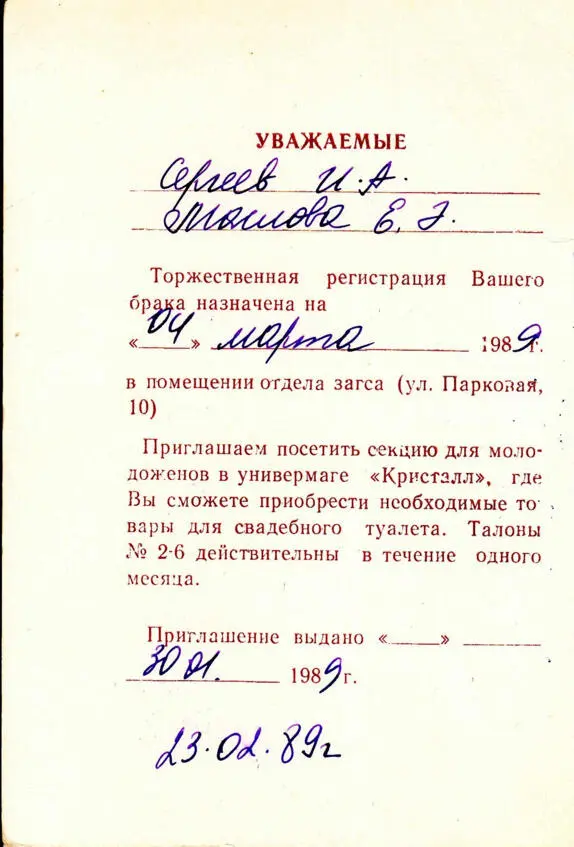 УВАЖАЕМЫЕ
Сергеев И. А.
Маслова Е. Э.
Торжественная регистрация Вашего
брака назначена на
«04» марта 1989г.
в помещении отдела загса (ул. Парковая,
10)
Приглашаем посетить секцию для моло-
доженов в универмаге «Кристалл», где
Вы сможете приобрести необходимые то-
вары для свадебного туалета. Талоны
№ 2-6 действительны в течение одного
месяца.
Приглашение выдано «____» ________
30 01. 1989г.
23.02.89г